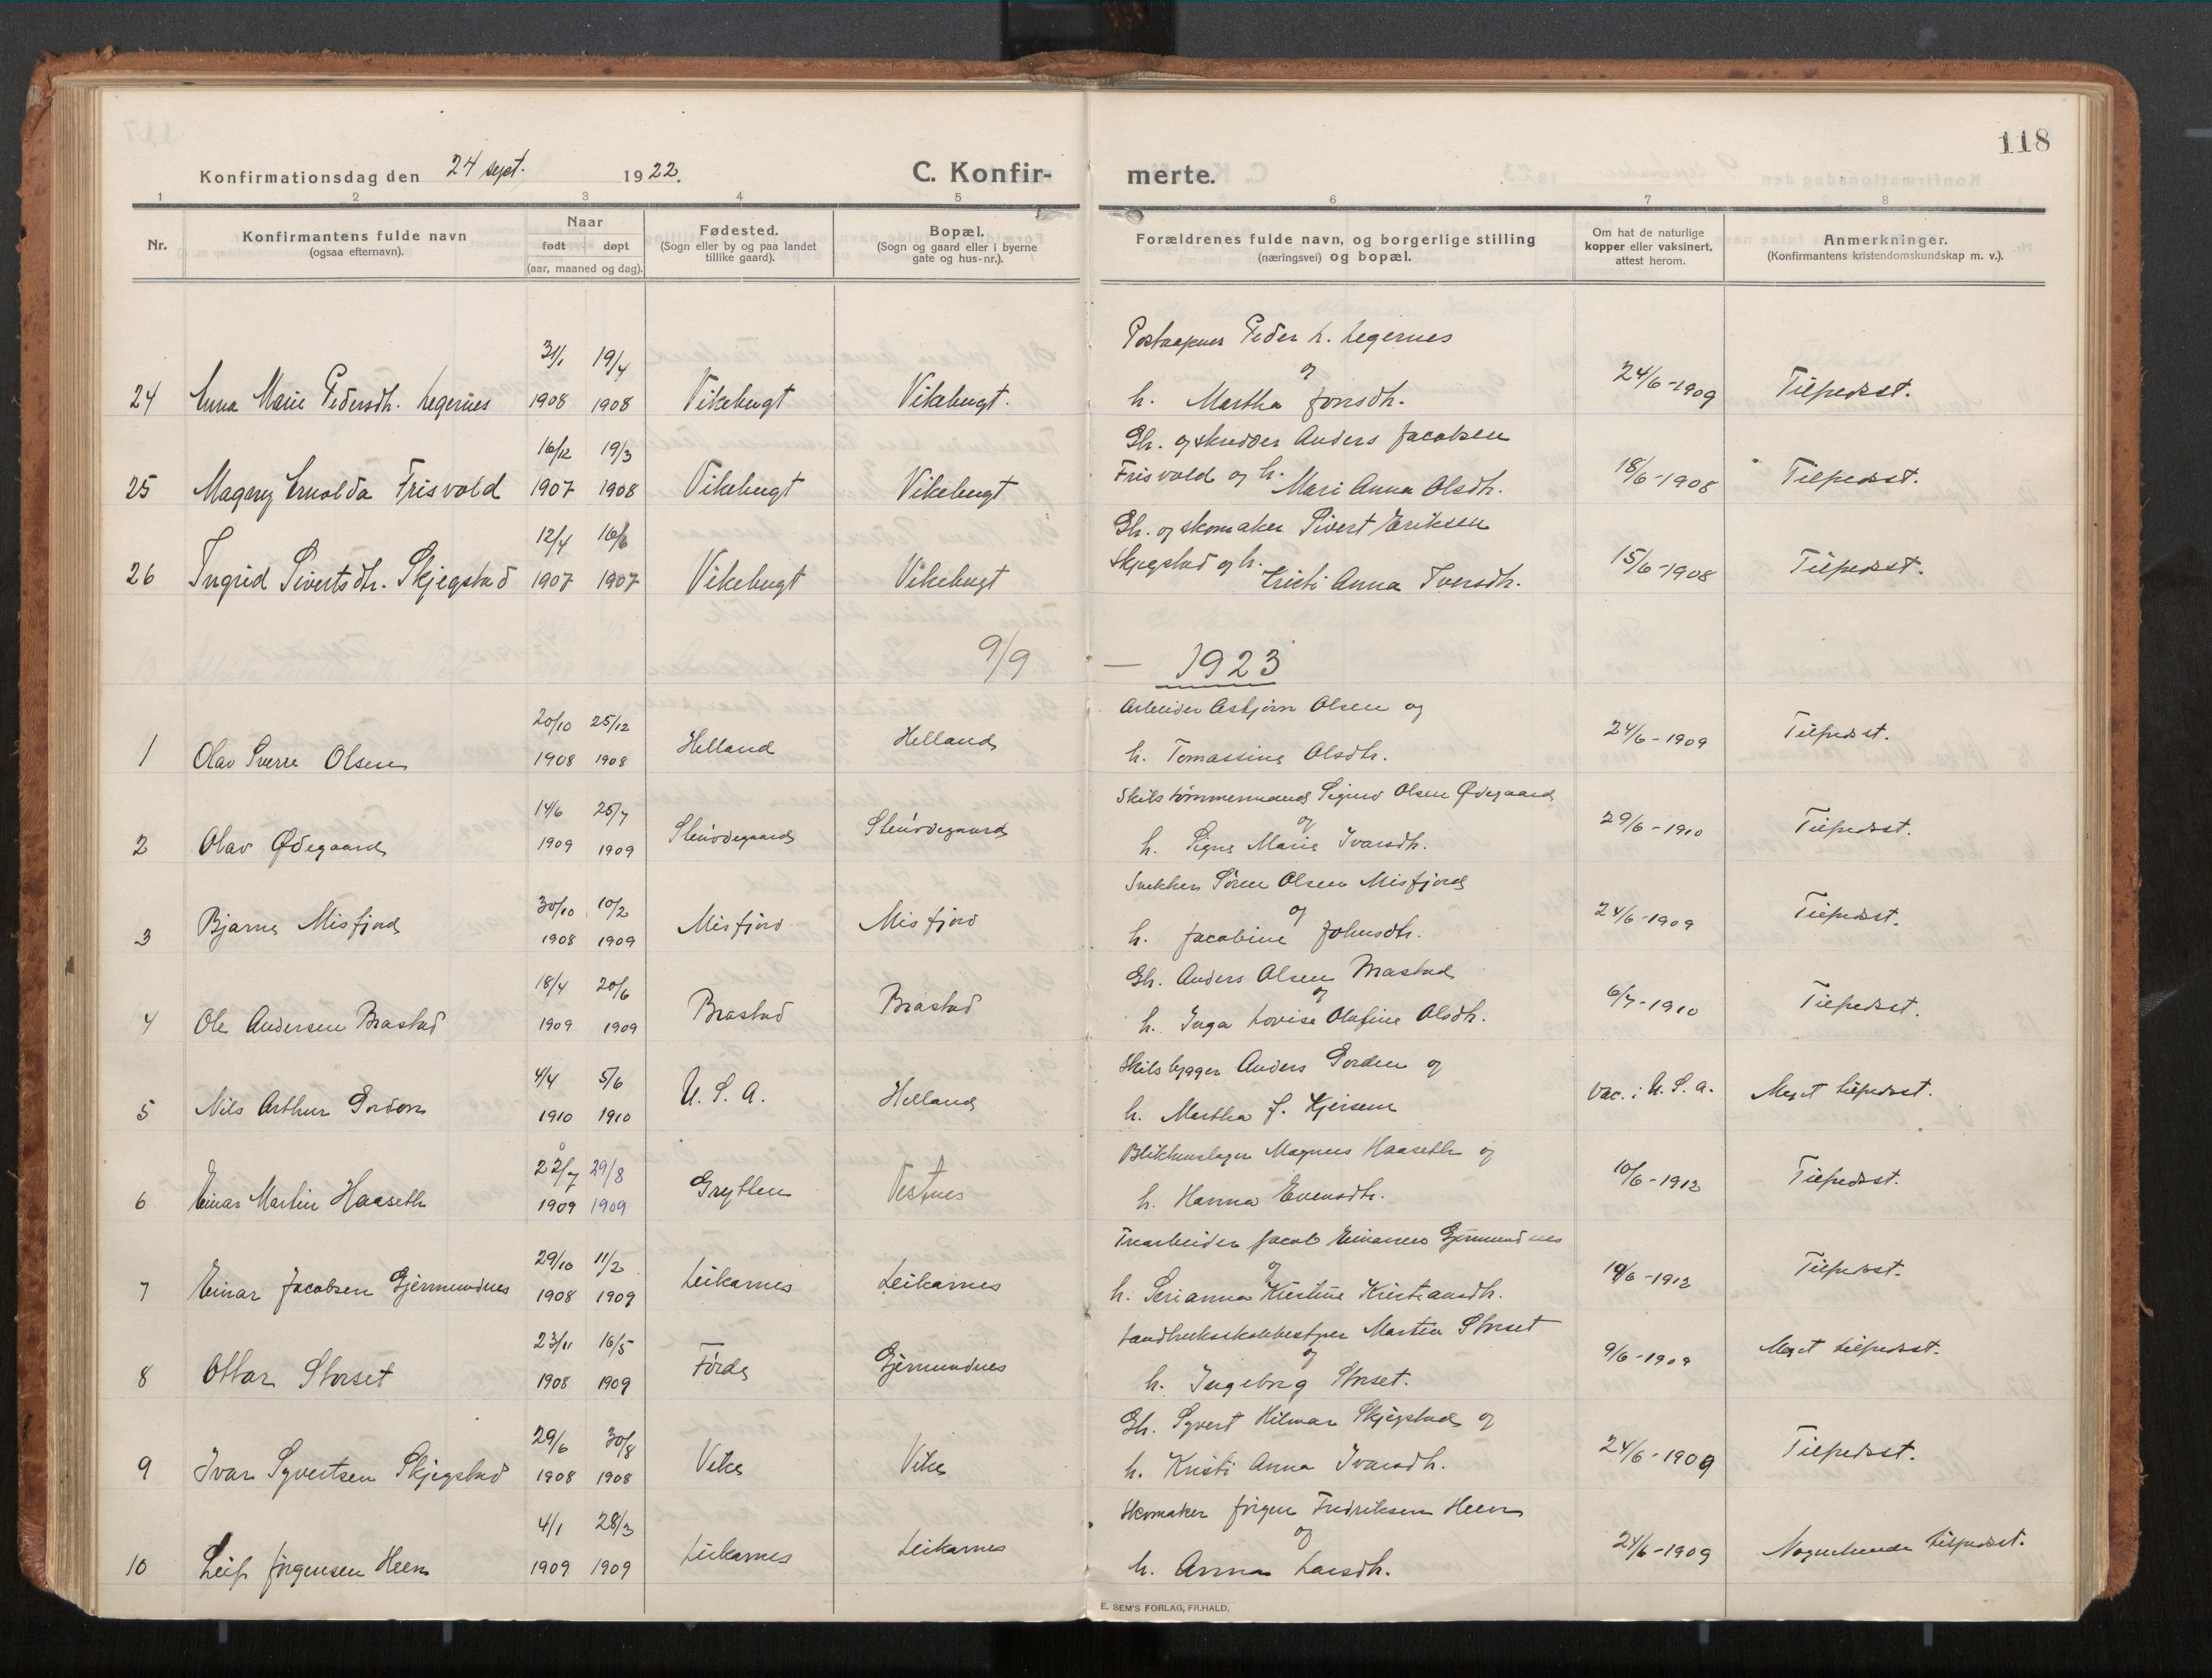 118
Konfirmationsdag den 24 sept. 1922. C. Konfir- merte.
1 2 3 4 5 6 7 8
Nr.
Konfirmantens fulde navn
(ogsaa efternavn).
Naar
født døpt
(aar, maaned og dag).
Fødested.
(Sogn eller by og paa landet
tillike gaard).
Bopæl.
(Sogn og gaard eller i byerne
gate og hus-nr.).
Forældrenes fulde navn, og borgerlige stilling
(næringsvei) og bopæl.
Om hat de naturlige
kopper eller vaksinert,
attest herom.
Anmerkninger.
(Konfirmantens kristendomskundskap m. v.).
31/1 19/4 Peder
24 Anna Marie Pedersdh. 1908 1908 Vikebugt Vikebugt. og 24/6-1909 Tilfredsst.
h. Martha Jonsdh.
16/12 19/3 Gh. og skredder Anders Jacobsen
25 Magny Ernolda Frisvold 1907 1908 Vikebugt Vikebugt Frisvold og h. 18/6-1908 Tilfredsst.
Mari Anna Olsdh.
12/4 16/6 Gh. og skomaker Sivert Eriksen
26 Ingrid Sivertsdh. Skjegstad 1907 1907 Vikebugt Vikebugt Skjegstad og h. 15/6-1908 Tilfredsst.
Kristi Anna Iversdh.
9/9 — 1923
20/10 25/12 Arbeider Asbjørn Olsen og
1 Olav Sverre Olsen 1908 1908 Helland Helland h. Tomassine Olsdh. 24/6-1909 Tilfredsst.
14/6 25/7 Skibstømmermand Sigurd Olsen Ødegaard
og
2 Olav Ødegaard 1909 1909 Stenødegaard Stenødegaard h. Signe Marie Ivarsdh. 29/6-1910 Tilfredsst.
30/10 10/2 Snekker Søren Olsen Misfjord
og
3 Bjarne Misfjord 1908 1909 Misfjord Misfjord h. Jacobine Johnsdh. 24/6-1909 Tilfredsst.
18/4 20/6 Gh. Anders Olsen Brastad
og
4 Ole Andersen Brastad 1909 1909 Brastad Brastad h. Inga Lovise Olufine Olsdh. 6/7-1910 Tilfredsst.
4/4 5/6 Skibsbygger Anders Gorden og
5 Nils Arthur Gordon 1910 1910 U.S.A. Helland h. Martha J. vac. i U.S.a. Meget tilfredsst.
22/7 29/8 Blikkenslager Magnus Haaseth og
6 Einar Martin Haaseth 1909 1909 Grytten Vestnes h. Hanna Evensdh. 10/6-1912 Tilfredsst.
29/10 11/2 Træarbeider Jacob Einarsen Gjermundnes
og
7 Einar Jacobsen Gjermundnes 1908 1909 Leikarnes Leikarnes h. Serianna Kristine Kristiansdh. 10/6-1912 Tilfredsst.
23/11 16/5 Landbruksskolebestyrer Martin Storset
og
8 Ottar Storset 1908 1909 Førde Gjermundnes h. Ingeborg Storset. 9/6-1909 Meget tilfredsst.
29/6 30/8 Gh. Syvert Hilmar Skjegstad og
9 Ivar Syvertsen Skjegstad 1908 1908 Vike Vike h. Kristi Anna Ivarsdh. 24/6-1909 Tilfredsst.
4/1 28/3 Skomaker Jörgen Fredriksen Heen
og
10 Leif Jörgensen Heen 1909 1909 Leikarnes Leikarnes h. Anna Larsdh. 24/6-1909 Nogenlunde tilfredsst.
E. SEM'S FORLAG, FR.HALD.